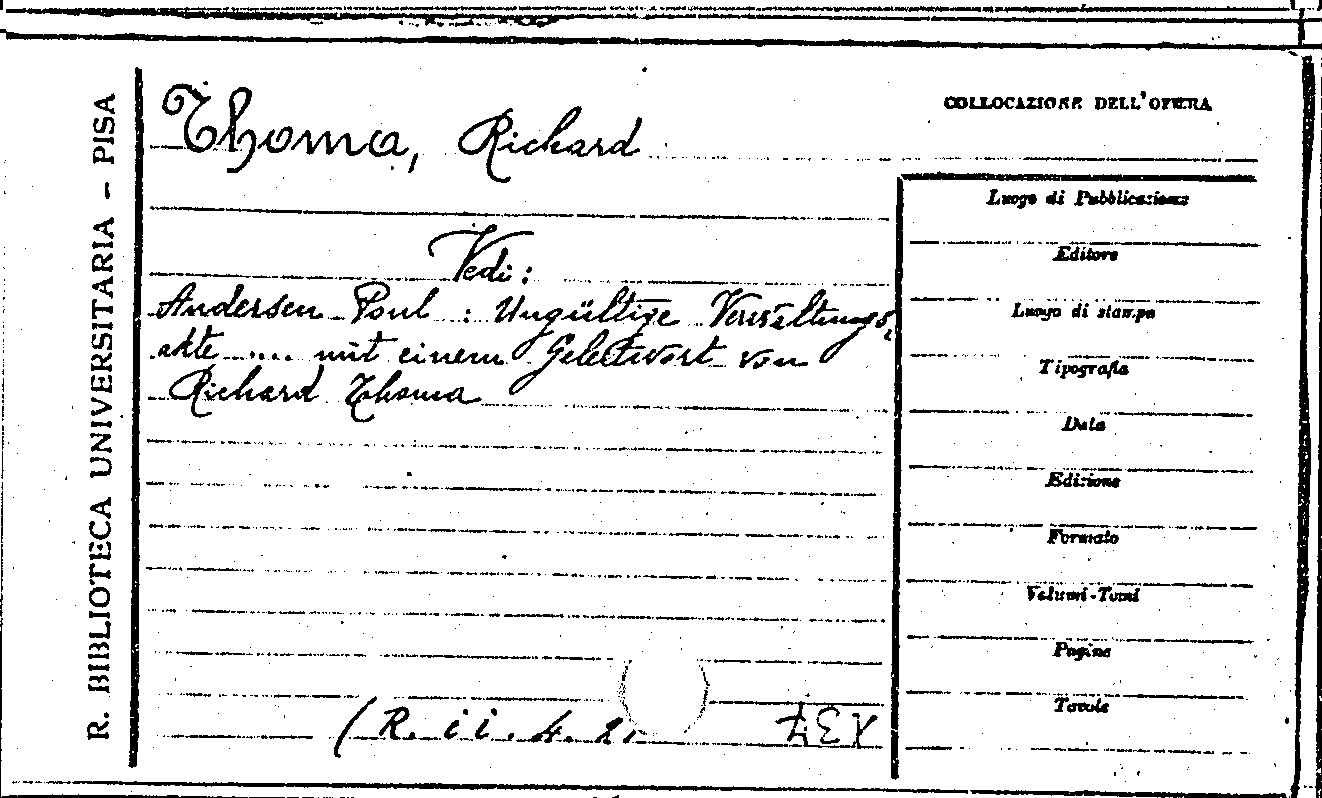 R. BIBLIOTECA UNIVERSITARIA - PISA
Thoma, Richard
Vedi:
Andersen Poul : Ungültige Verwaltungs,
akte .... mit einem Geleitwort von
Richard Thoma
(R. ii. 4. 2.
COLLOCAZIONE DELL'OPERA
Luogo di Pubblicazione
Editore
Luogo di stampa
Tipografia
Data
Edizione
Formato
Volumi-Tomi
Pagine
Tavole